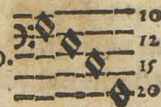 10
12
15
20